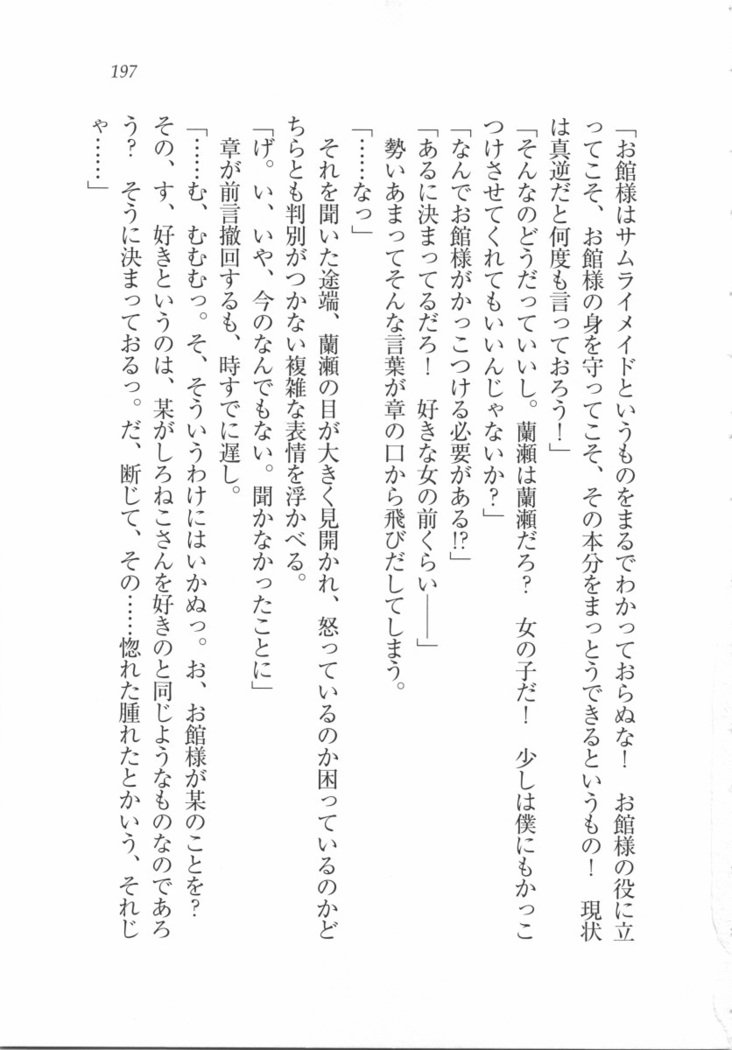 197
「お館様はサムライメイドというものをまるでわかっておらぬな！　お館様の役に立
ってこそ、お館様の身を守ってこそ、その本分をまっとうできるというもの！　現状
は真逆だと何度も言っておろう！」
「そんなのどうだっていいし。蘭瀬は蘭瀬だろ？　女の子だ！　少しは僕にもかっこ
つけさせてくれてもいいんじゃないか？」
「なんでお館様がかっこつける必要がある!?」
「あるに決まってるだろ！　好きな女の前くらい――」
勢いあまってそんな言葉が章の口から飛びだしてしまう。
「……なっ」
それを聞いた途端、蘭瀬の目が大きく見開かれ、怒っているのか困っているのかど
ちらとも判別がつかない複雑な表情を浮かべる。
「げ。い、いや、今のなんでもない。聞かなかったことに」
章が前言撤回するも、時すでに遅し。
「……む、むむむっ。そ、そういうわけにはいかぬっ。お、お館様が某のことを？
その、す、好きというのは、某がしろねこさんを好きのと同じようなものなのであろ
う？　そうに決まっておるっ。だ、断じて、その……惚れた腫れたとかいう、それじ
ゃ……」